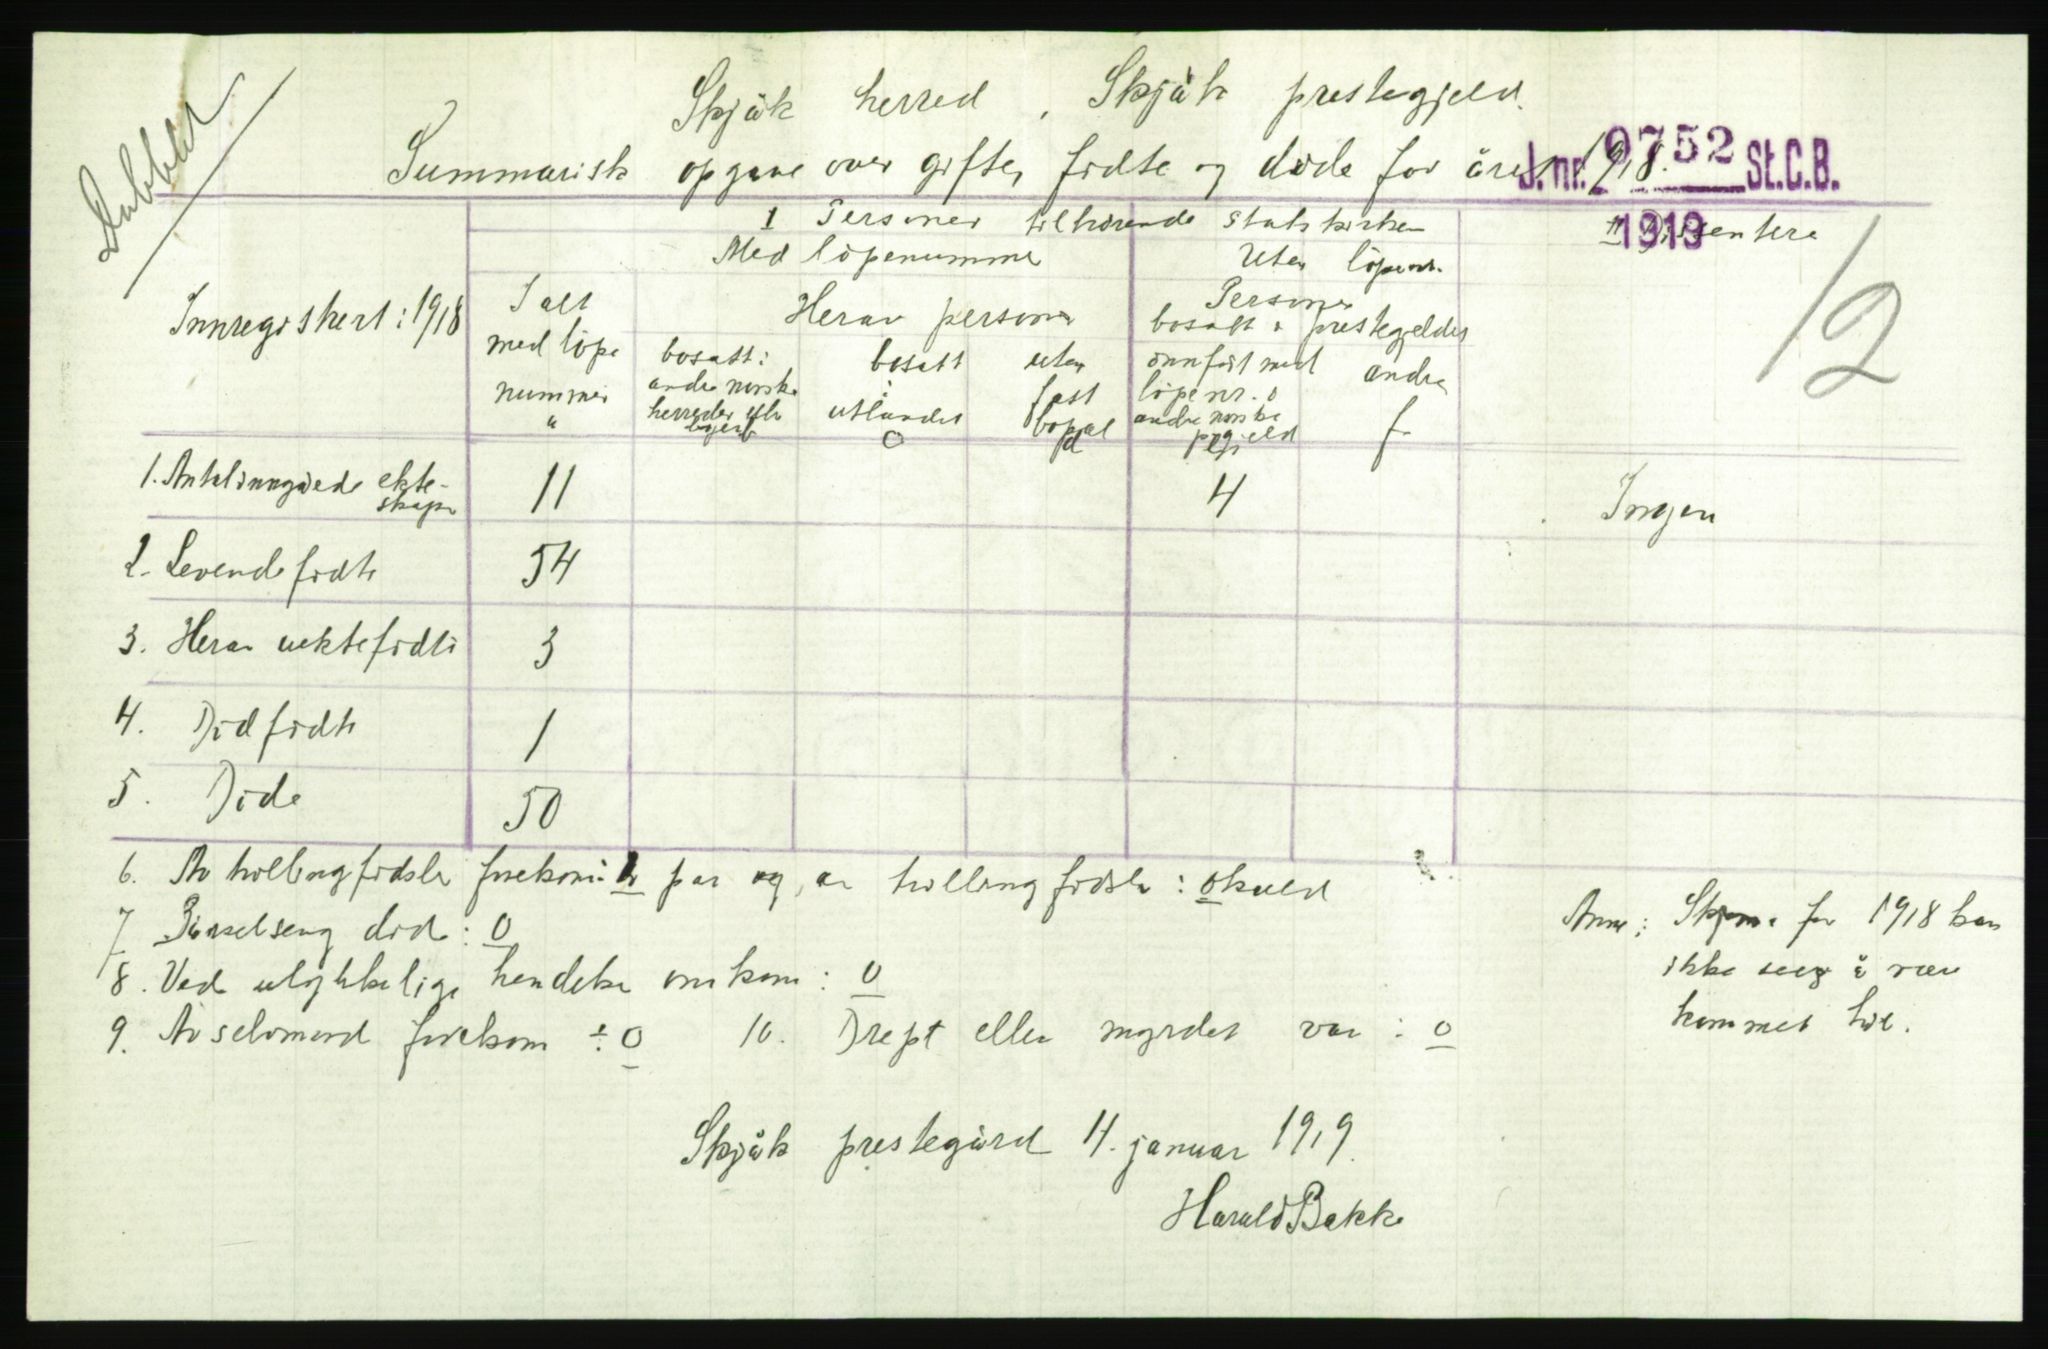 Dubblet
Skjåk herred, Skjåk prestegjeld.
Summarisk opgave over gifte, födte og döde for året 1918.
J. nr. 9752 St.C.B.
1919
I Personer tilhörende statskirken
II Dissentere
Med löpenummer
Uten löpenr.
12
Innregistrert: 1918
I alt
med löpe
nummer
a
Herav personer
bosatt i
andre norske
herreder eller
byer b
bosatt
i
utlandet
c
uten
fast
bopæl
d
Personer
bosatt i prestegjeldet
innfört med
löpenr. i
andre norske
prgjeld
e
andre
f
1. Antal inngåede ekte-
skaper
11
4
Ingen
2. Levende födte
54
3. Herav uektefödte
3
4. Dödfödte
1
5. Döde
50
6. Av tvillingfödsler forekom: par og av trillingfödsler: 0 kuld
7 Barselseng död: 0
8. Ved ulykkelige hendelser omkom: 0
9. Av selvmord forekom: 0
10. Drept eller myrdet var: 0
Anm: Skjema for 1918 kan
ikke sees å være
kommet hit.
Skjåk prestegård 4. januar 1919.
Harald Bakke